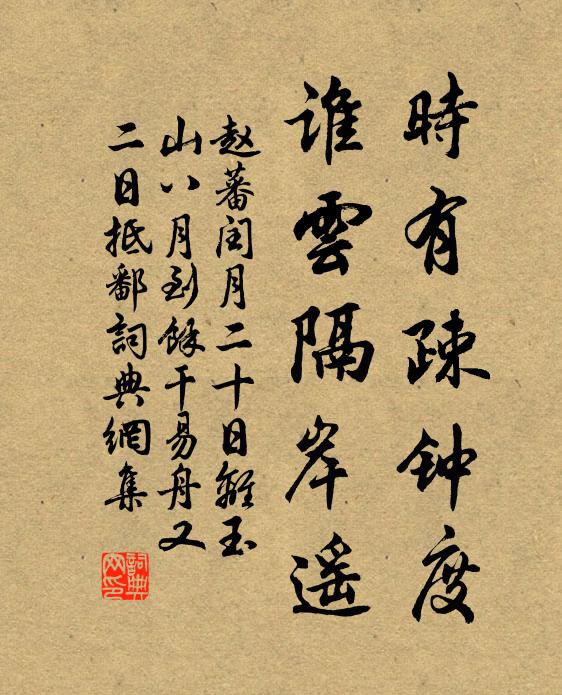 時有疎钟度
谁雲隔岸遥
赵蕃闰月二十日離玉
山八月到餘干易舟又
二日抵鄱詞典網集
詞典网印